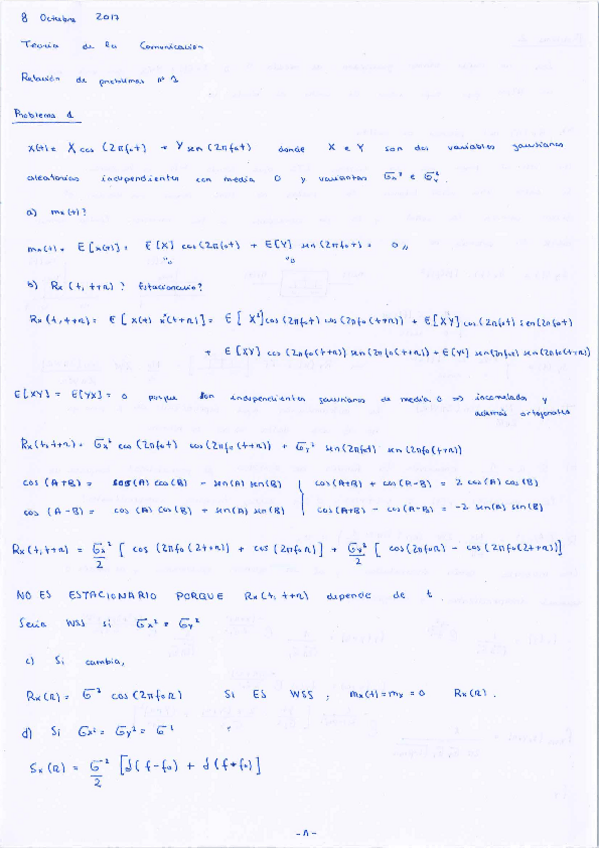 8 Octubre 2017
Teoría de la Comunicación
Relación de problemas nº 1
Problema 1
X(t)= X cos (2πf₀t) + Y sen (2πf₀t) donde X e Y son dos variables gaussianas
aleatorias independientes con media 0 y varianzas σx² e σy².
a) mx(t)?
mx(t) = E[X(t)] = E[X] cos(2πf₀t) + E[Y] sen (2πf₀t) = 0 //
"0 "0
b) Rx (t, t+τ)? Estacionario?
Rx (t, t+τ)= E [ X(t) x*(t+τ)] = E [ X²] cos(2πf₀t) cos(2πf₀(t+τ)) + E[XY] cos(2πf₀t) sen(2πf₀t)
+ E[XY] cos (2πf₀(t+τ)) sen(2πf₀(t+τ)) + E[Y²] sen(2πf₀t) sen(2πf₀(t+τ))
E[XY] = E[YX] = 0 porque son independientes gaussianas de media 0 => incorreladas y
además ortogonales
Rx(t,t+τ) = σx² cos (2πf₀t) cos(2πf₀(t+τ)) + σy² sen(2πf₀t) sen (2πf₀(t+τ))
cos (A+B) = cos(A) cos(B) - sen(A) sen(B) | cos(A+B) + cos(A-B) = 2 cos(A) cos(B)
cos (A-B) = cos (A) cos(B) + sen(A) sen(B) | cos(A+B) - cos(A-B) = -2 sen(A) sen(B)
Rx(t, t+τ) = σx²/2 [ cos (2πf₀(2t+τ)) + cos(2πf₀τ] + σy²/2 [ cos(2πf₀τ) - cos(2πf₀(2t+τ))]
NO ES ESTACIONARIO PORQUE Rx(t, t+τ) depende de t
Sería WSS si σx² = σy²
c) Si cambia,
Rx(τ) = σ² cos(2πf₀τ) SI ES WSS, mx(t)=mx = 0 Rx(τ).
d) Si σx² = σy² = σ²
Sx(τ) = σ²/2 [δ(f-f₀) + δ(f+f₀)]
-1-